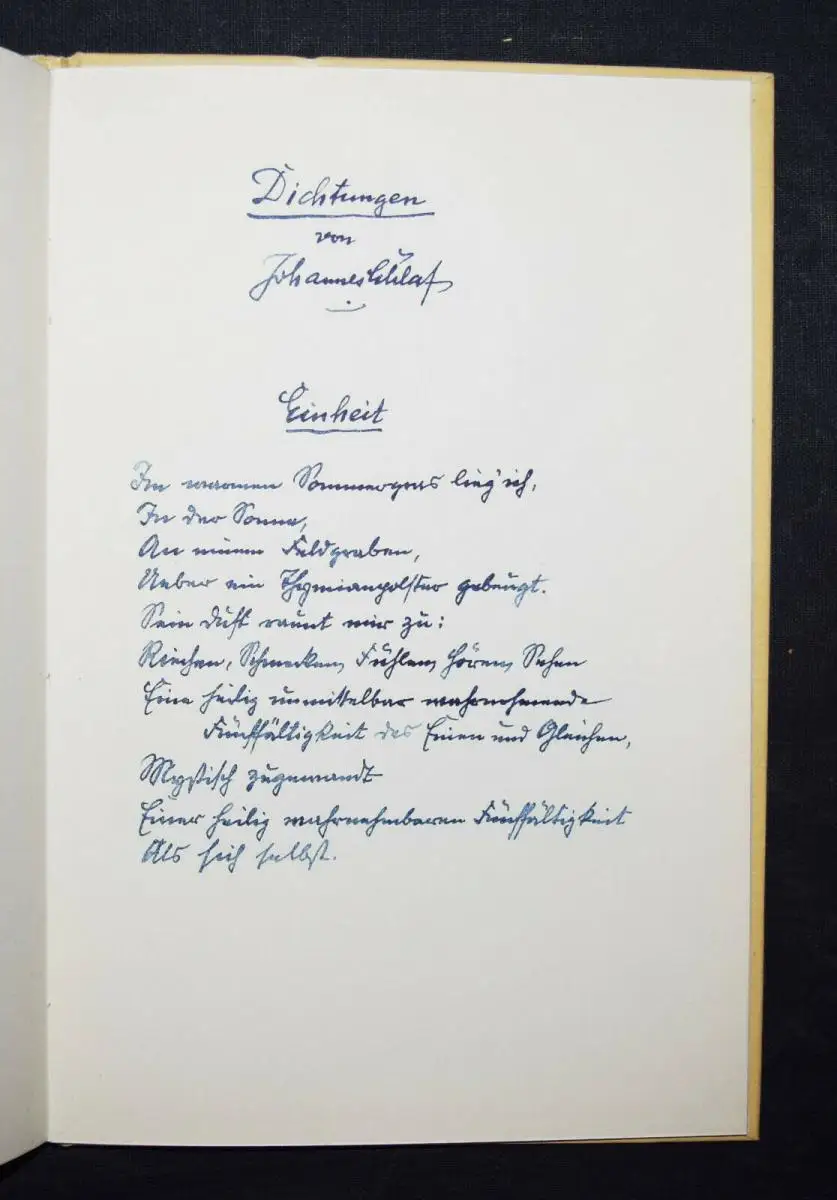 Dichtungen
von
Johannes Schlaf
Einheit
Im warmen Sommergras lieg' ich,
In der Sonne,
An einem Feldgraben,
Ueber ein Thymianpolster gebeugt.
Sein Duft raunt mir zu:
Riechen, Schmecken, Fühlen, Hören, Sehen
Eine heilig unmittelbar wahrnehmende
Fünffältigkeit des Einen und Gleichen,
Mystisch zugewandt
Einer heilig wahrnehmbaren Fünffältigkeit
Als sich selbst.